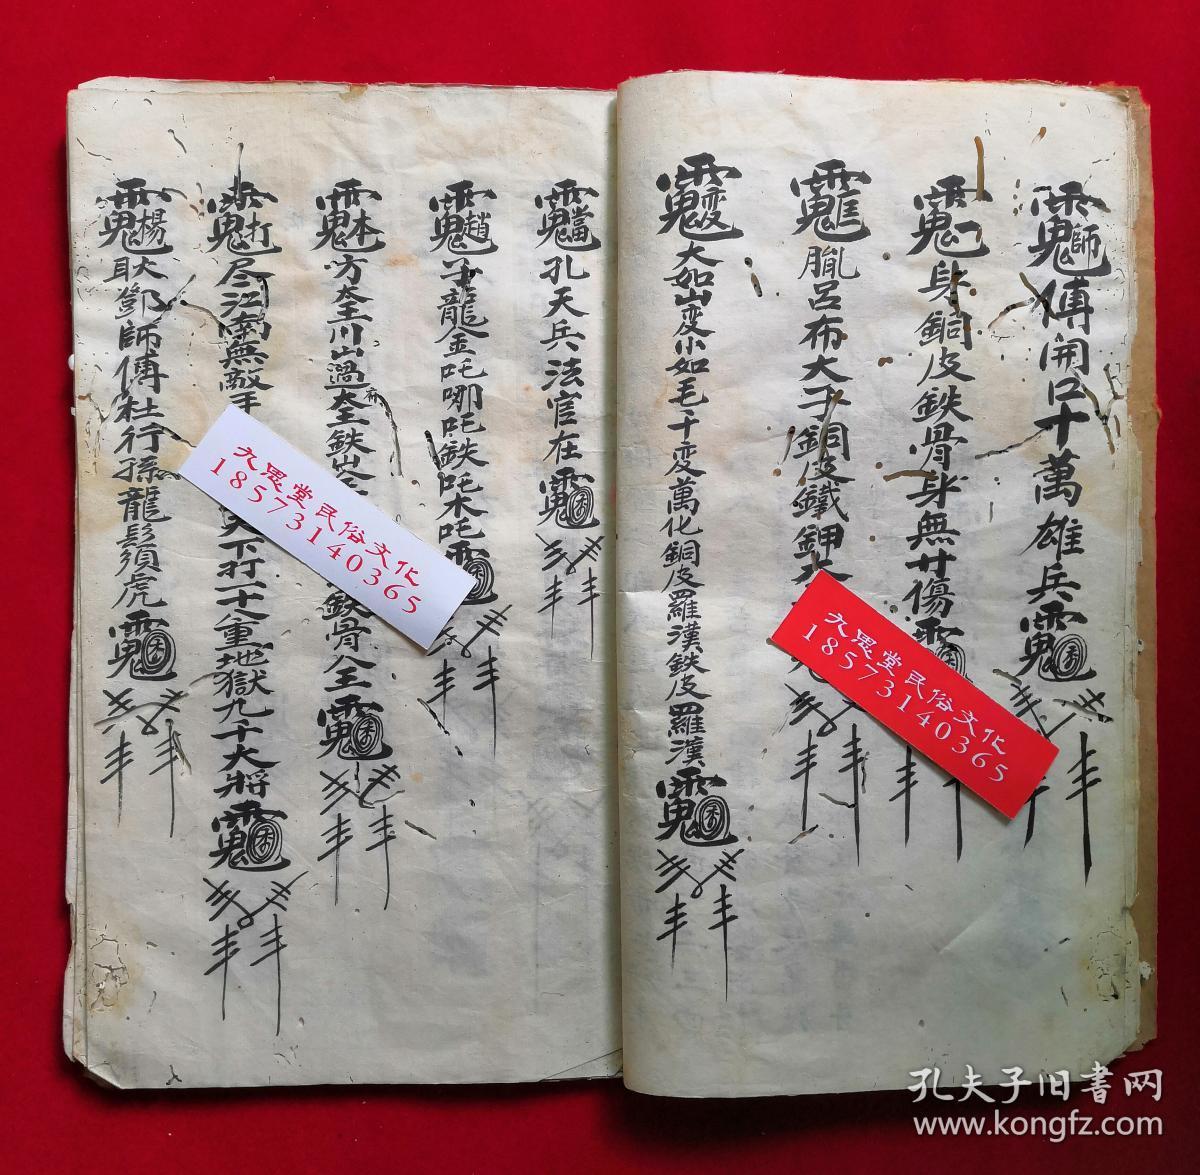 師傅開口十萬雄兵
身銅皮鉄骨身無廿傷
胤呂布大子銅皮鐵鉀
变大如山变小如毛千变萬化銅皮羅漢鉄皮羅漢
當孔天兵法官在
趙子龍金吒哪吒鉄吒木吒
本方大王川山過大王鉄
鉄骨八王
打尽江南無敵手
天下打十八重地獄九千大將
楊耿鄧師傅杜行孫龍鬚須虎
九思堂民俗文化
18573140365
九思堂民俗文化
18573140365
孔夫子旧书网
www.kongfz.com